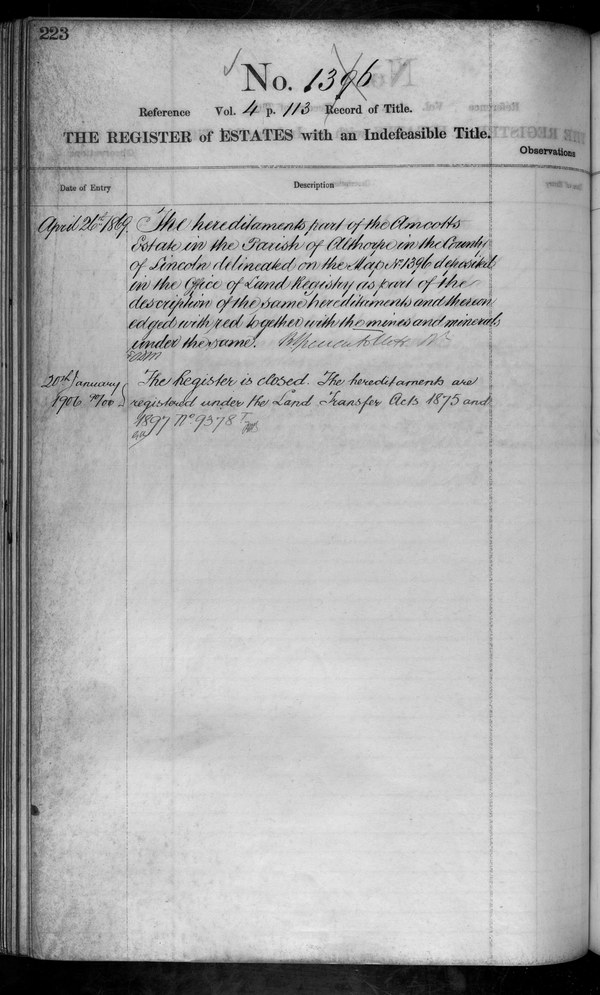 223
No. 1396
Reference Vol. 4 p. 113 Record of Title.
THE REGISTER of ESTATES with an Indefeasible Title.
Observations
Date of Entry
Description
April 26th 1869
The hereditaments part of the Amcotts
Estate in the Parish of Althorpe in the County
of Lincoln delineated on the Map No 1396 deposited
in the Office of Land Registry as part of the
description of the same hereditaments and thereon
edged with red together with the mines and minerals
under the same.
20th January
1906
The Register is closed. The hereditaments are
registered under the Land Transfer Acts 1875 and
1897 No 9378